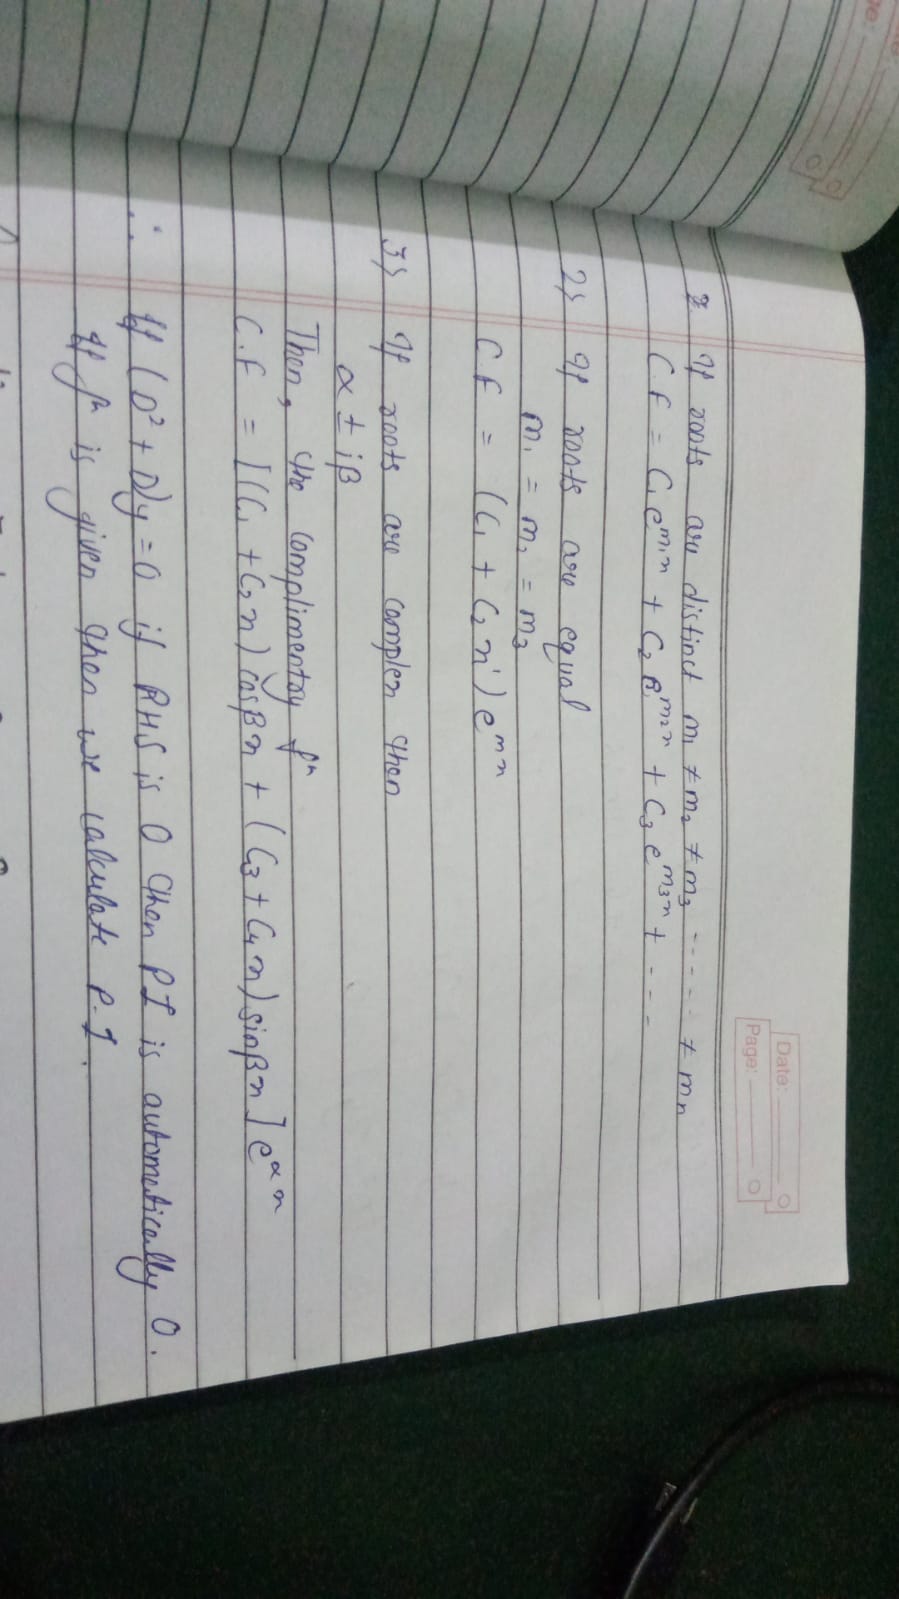 Date:
Page:
1) If roots are distinct m₁ ≠ m₂ ≠ m₃ ----- ≠ mₙ
C.F = C₁e^{m₁x} + C₂e^{m₂x} + C₃e^{m₃x} + ---
2) If roots are equal
m₁ = m₂ = m₃
C.F = (C₁ + C₂x) e^{mx}
3) If roots are complex then
α ± iβ
Then, the complimentay fⁿ
C.F = [(C₁ + C₂x) cosβx + (C₃ + C₄x) sinβx] e^{αx}
∴ If (D² + D)y = 0 if RHS is 0 then PI is autometically 0.
If fⁿ is given then we calculate P.I.